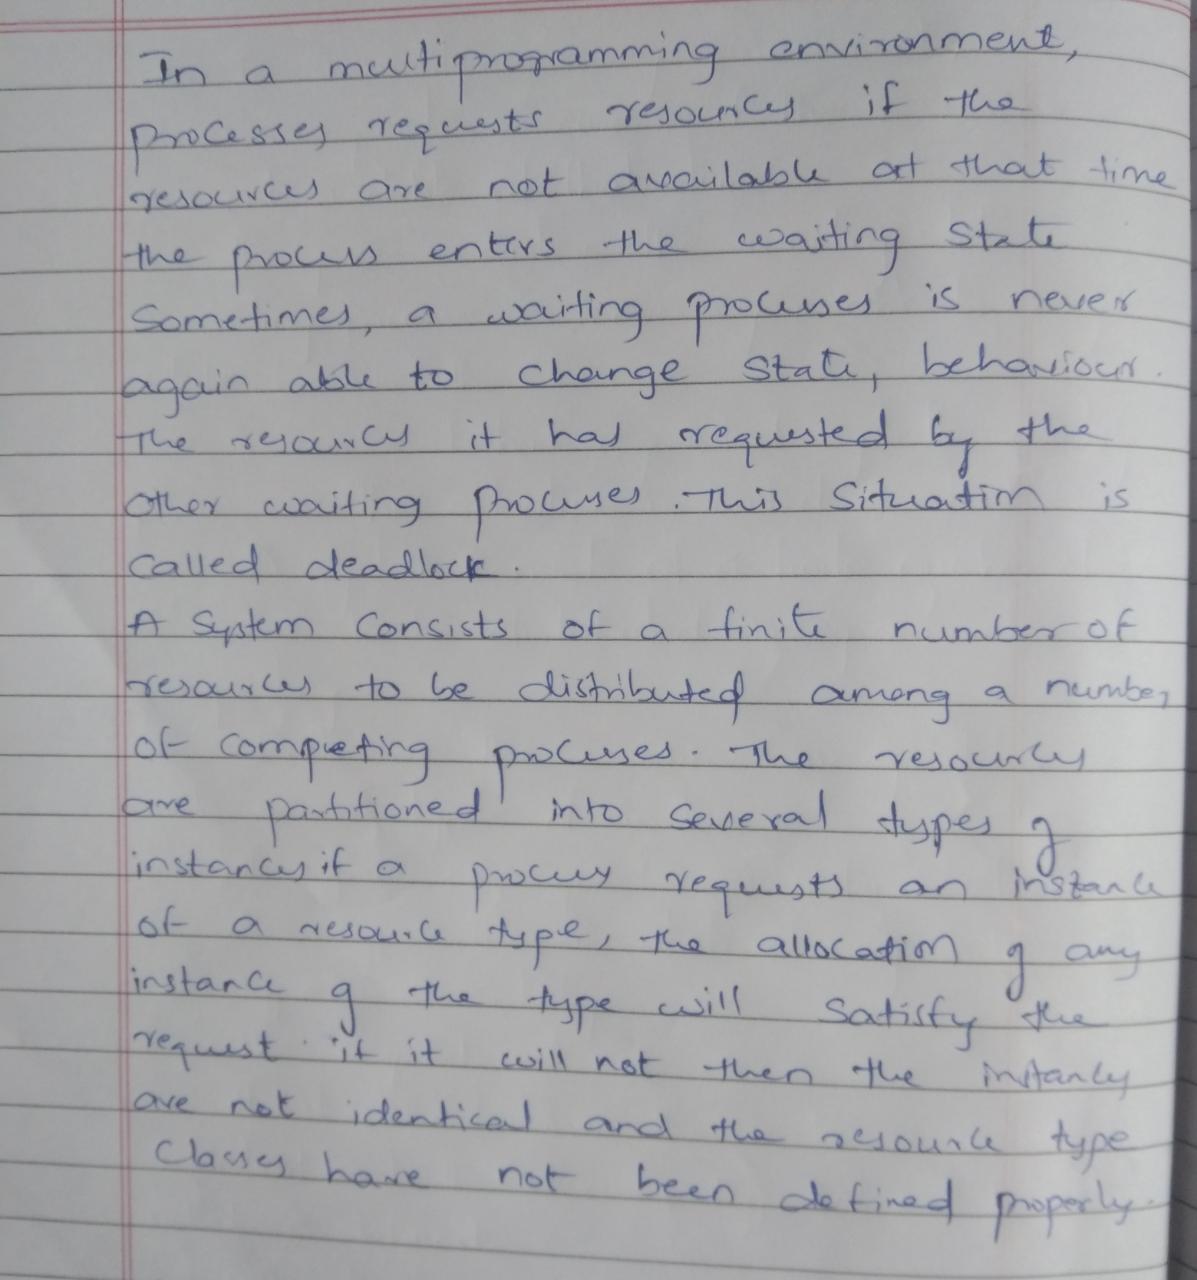 In a multiprogramming environment,
processes requests resources if the
resources are not available at that time
the process enters the waiting state
Sometimes, a waiting processes is never
again able to change state, behaviour.
The resources it has requested by the
other waiting processes. This situation is
called deadlock.
A system consists of a finite number of
resources to be distributed among a number
of competing processes. The resources
are partitioned into several types of
instances if a process requests an instance
of a resource type, the allocation of any
instance of the type will satisfy the
request. if it will not then the instances
are not identical and the resource type
classes have not been defined properly.